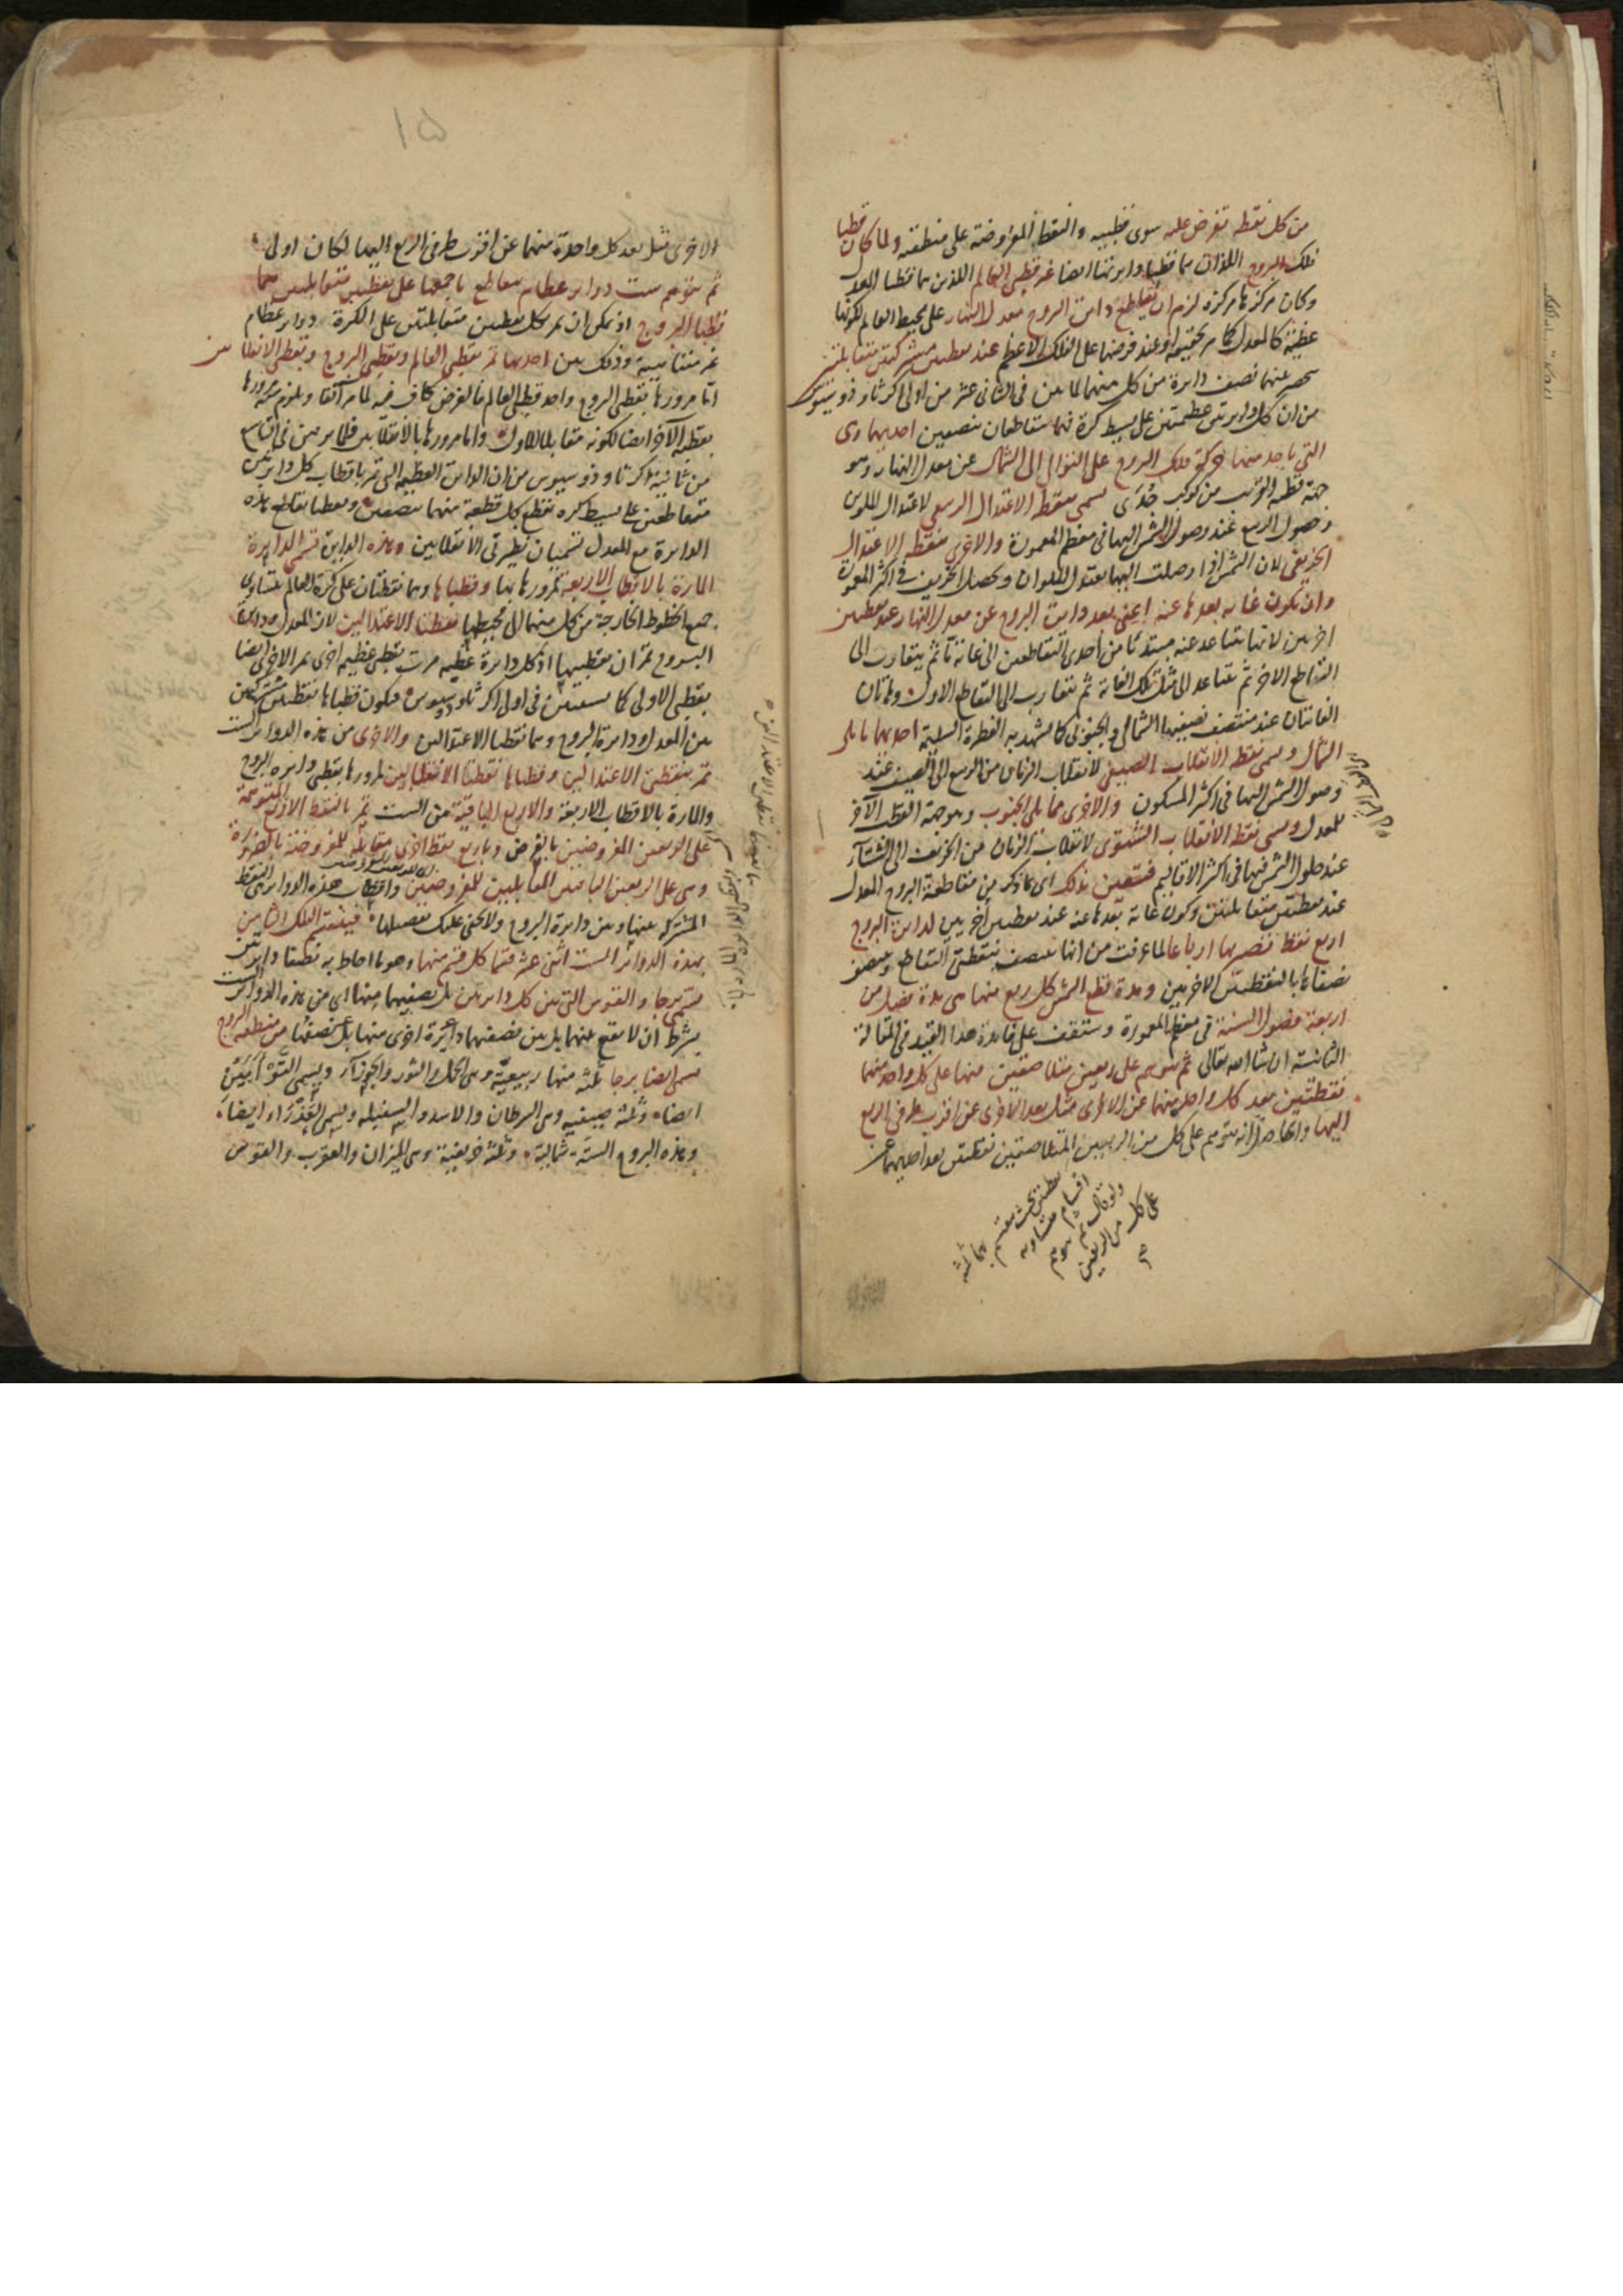 من كل نقطة تفرض عليه سوى قطبيه والنقط المفروضة على منطقته ولما كان قطبا
فلك البروج اللذان هما قطبا دايرتها ايضا غير قطبى العالم اللذين هما قطبا المعدل
وكان مركزها مركزه لزم ان يقاطع دايرة البروج معدل النهار على محيط العالم لكونها
عظيمة كالمعدل كما مر تحقيقه وعند فرضها على الفلك الاعظم عند نقطتين مشتركتين متقابلتين
عنهما نصف دايرة من كل منهما لما بين فى الثانى عشر من اولى اكر ثاوذوسيوس
من ان كل دايرتين عظيمتين على بسيط كرة فهما يتقاطعان بنصفين احديهما وهى
التى ياخذ منها حركة فلك البروج على التوالى الى الشمال عن معدل النهار وهو
جهة قطبه القريب من كوكب جُدَى يسمى نقطة الاعتدال الربيعى لاعتدال الملوين
وحصول الربيع عند وصول الشمس اليها فى معظم المعمورة والاخرى نقطة الاعتدال
الخريفى لان الشمس اذا وصلت اليها يعتدل الملوان ويحصل الخريف فى اكثر المعمورة
وان يكون غاية بعدها عنه اعنى بعد دايرة البروج عن معدل النهار عند نقطتين
اخريين لانها تتباعد عنه مبتدئا من احدى التقاطعين الى غاية ما ثم يتقارب الى
التقاطع الاخر ثم تتباعد الى مثل تلك الغاية ثم تتقارب الى التقاطع الاول وهاتان
الغايتان عند منتصف نصفيها الشمالى والجنوبى كما يشهد به الفطرة السليمة احديهما مما يلى
الشمال ويسمى نقطة الانقلاب الصيفى لانقلاب الزمان من الربيع الى الصيف عند
وصول الشمس اليها فى اكثر المسكون والاخرى مما يلى الجنوب وهو جهة القطب الآخر
للمعدل ويسمى نقطة الانقلاب الشتوى لانقلاب الزمان من الخريف الى الشتاء
عند حلول الشمس فيها فى اكثر الاقاليم فتتعين بذلك اى بما ذكر من مقاطعة البروج المعدل
عند نقطتين متقابلتين وكون غاية بعدها عنه عند نقطتين اخريين لدايرة البروج
اربع نقط تنصربها ارباعا لما عرفت من انها تنصف بنقطتى التقاطع وينصف
نصفاها بالنقطتين الاخريين ومدة قطع الشمس كل ربع منها هى مدة فصل من
اربعة فصول السنة فى معظم المعمورة وستقف على فايدة هذا القيد فى المقالة
الثانية ان شا الله تعالى ثم يتوهم على ربعين متلاصقين منها على كل واحد منهما
نقطتين بعد كل واحد منهما عن الاخرى مثل بعد الاخرى عن اقرب طرفى الربع
اليها والحاصل انه يتوهم على كل من الربعين المتلاصقين نقطتين بعد احديهما عن
نقطتين بحيث ينقسم بهما ثلثة
اقسام متساوية
ولو قال ثم يتوهم
على كل من الربعين
١٥
الاخرى مثل بعد كل واحدة منهما عن اقرب طرفى الربع اليها لكان اولى
ثم يتوهم ست دواير عظام يتقاطع باجمعها على نقطتين متقابلتين هما
قطبا البروج اذ يمكن ان يمر بكل نقطتين متقابلتين على الكرة دواير عظام
غير متناهية وذلك بين احديها تمر بقطبى العالم وبقطبى البروج وبنقطتى الانقلابين
اما مرورها بقطبى البروج واحد قطبى العالم فالفرض كاف فيه لما مر آنفا ويلزم مرورها
بقطبه الآخر ايضا لكونه مقابلا للاول واما مرورها بالانقلابين فلما برهن فى التاسع
من ثانية اكر ثاوذوسيوس من ان الدايرة العظيمة التى تمر باقطاب كل دايرتين
متقاطعتين على بسيط كره تقطع كل قطعة منهما بنصفين ونقطتا تقاطع هذه
الدايرة مع المعدل تسميان نظيرتى الانقلابين وهذه الدايرة تسمى الدايرة
المارة بالاقطاب الاربعة لمرورها بها وقطباها وهما نقطتان على كرة العالم يتساوى
جميع الخطوط الخارجة من كل منهما الى محيطها نقطتا الاعتدالين لان المعدل ودايرة
البروج تمران بقطبيها اذ كل دايرة عظيمه مرت بقطبى عظيمه اخرى يمر الاخرى ايضا
بقطبى الاولى كما يستبين فى اولى اكر ثاوذوسيوس فيكون قطباها نقطتين مشتركتين
بين المعدل ودايرة البروج وهما نقطتا الاعتدالين والاخرى من هذه الدواير الست
تمر بنقطتى الاعتدالين وقطباها نقطتا الانقلابين لمرورها بقطبى دايره البروج
والمارة بالاقطاب الاربعة والاربع الباقية من الست تمر بالنقط الاربع المتوهمة
على الربعين المفروضين بالفرض وباربع نقط اخرى مقابلة للمفروضة بالضرورة
وهى على الربعين الباقيين المقابلين للمفروضين واقطاب هذه الدواير هى النقط
المشتركة بينها وبين دايرة البروج ولا يخفى عليك تفصيلها فينقسم الفلك الثامن
بهذه الدوائر الست اثنى عشر قسما كل قسم منها وهو ما احاط به نصفا دايرتين
يسمى برجا والقوس التى بين كل دايرتين بل نصفيهما منها اى من هذه الدواير الست
بشرط ان لا يقع بينهما بل بين نصفيهما دايرة اخرى منها بل نصفها من منطقة البروج
يسمى ايضا برجا ثلثة منها ربيعية وهى الحمل والثور والجوزآء ويسمى التوْأمَيْن
ايضا وثلثة صيفيه وهى السرطان والاسد والسنبله ويسمى العَذْرَاء ايضاً
وهذه البروج الستة شمالية وثلثة خريفية وهى الميزان والعقرب والقوس